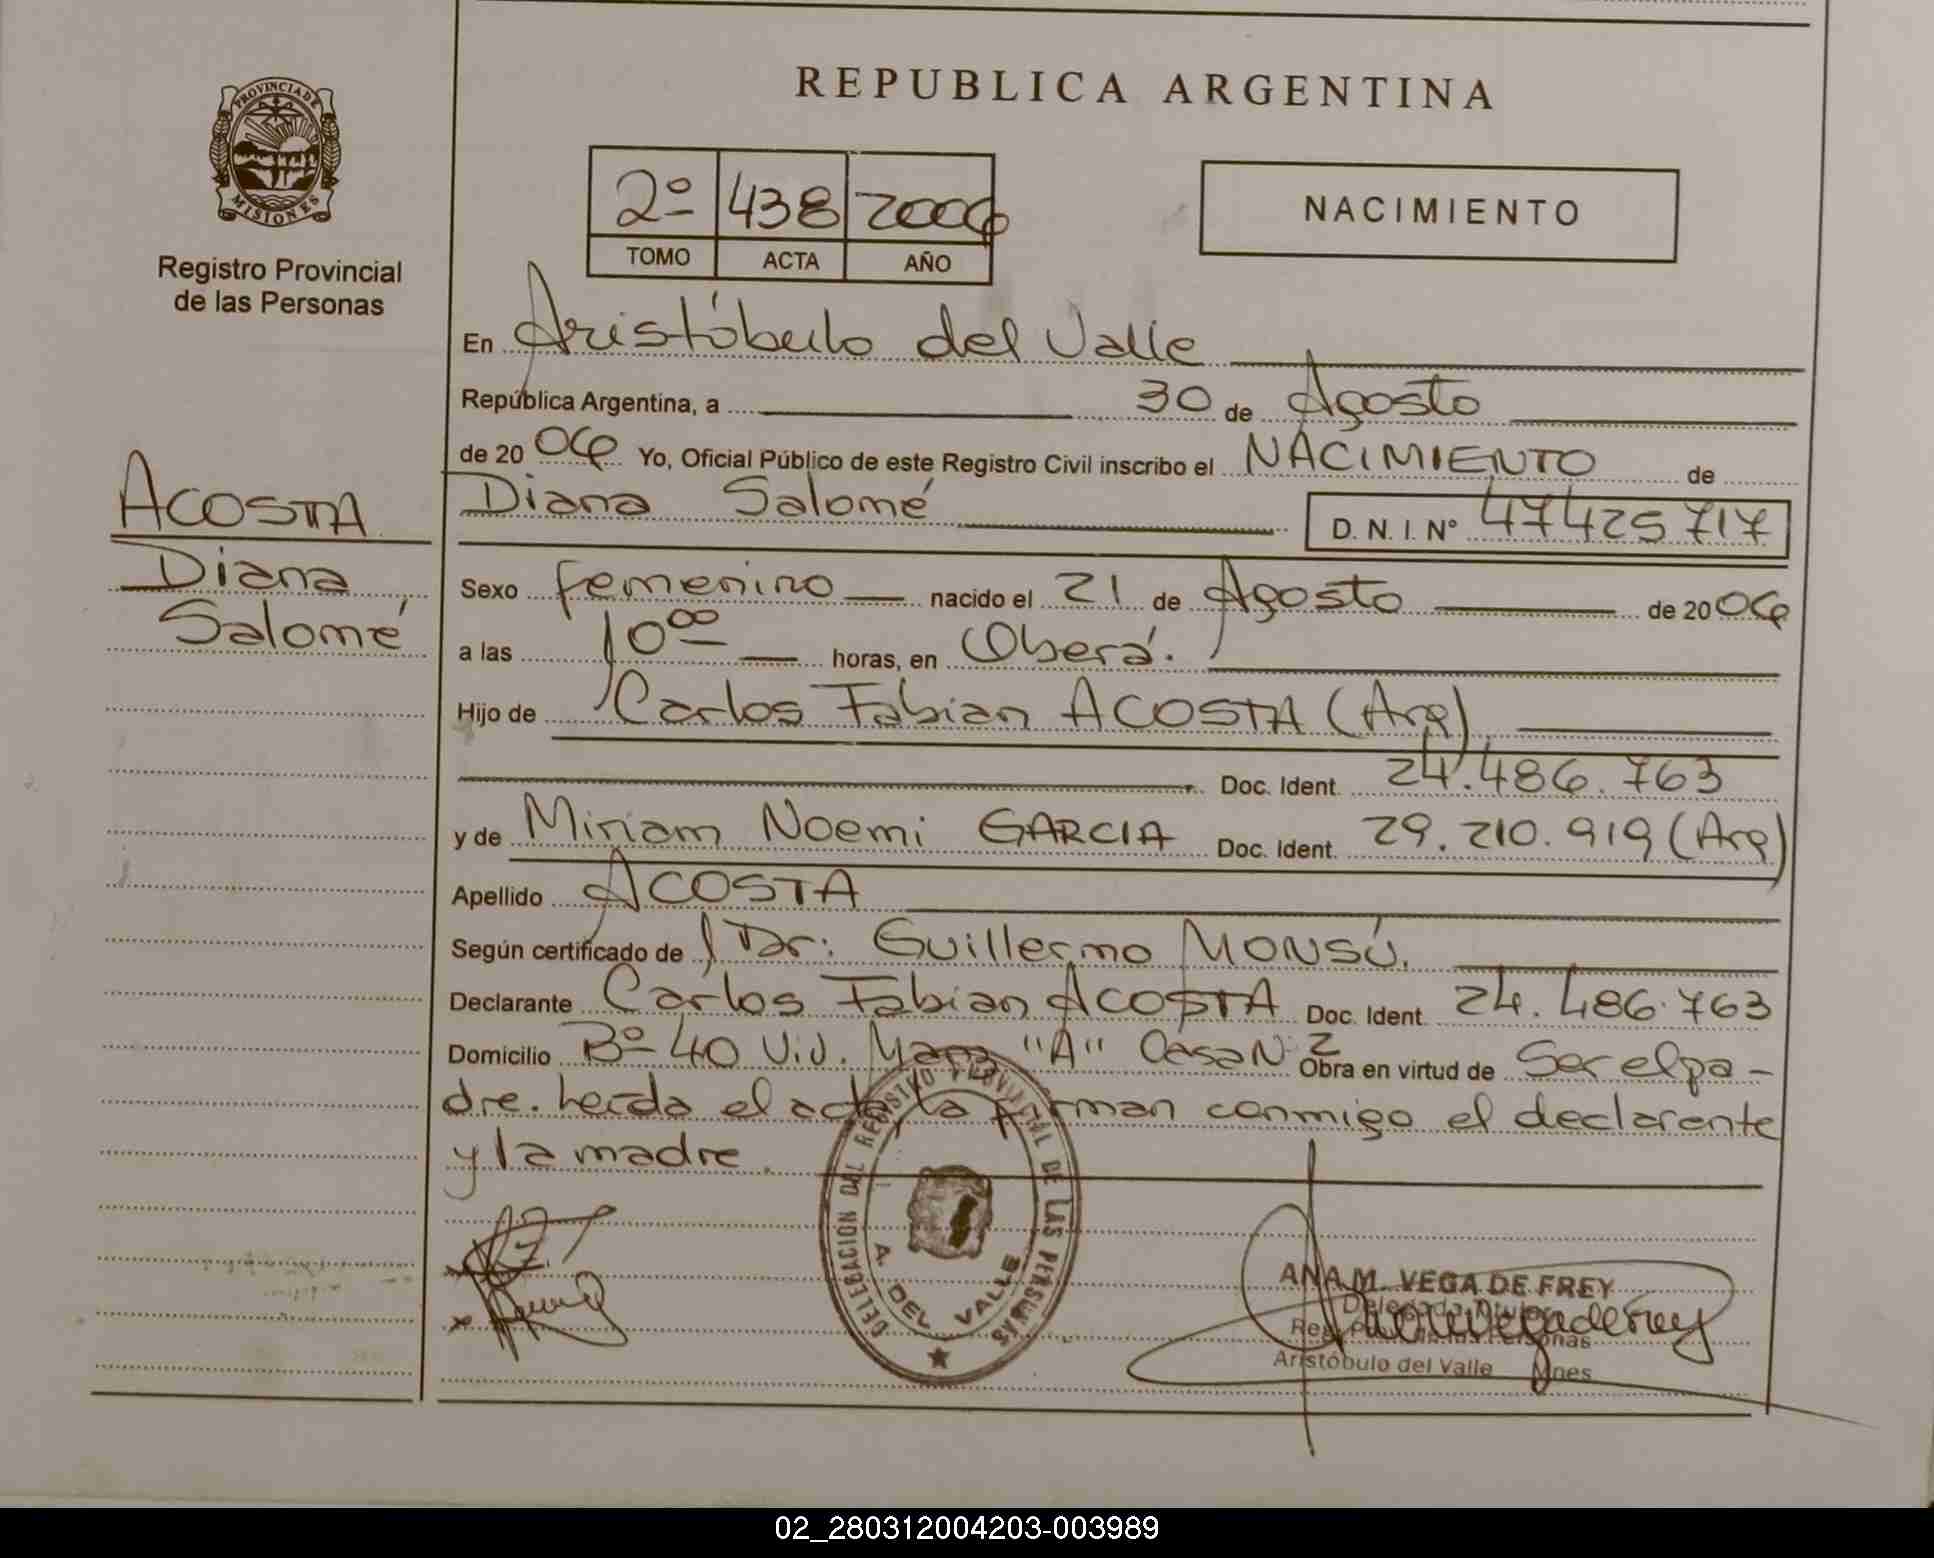 REPUBLICA ARGENTINA
PROVINCIA DE MISIONES
Registro Provincial
de las Personas
2º 438 2006
TOMO ACTA AÑO
NACIMIENTO
En Aristóbulo del Valle
República Argentina, a 30 de Agosto
de 20 06 Yo, Oficial Público de este Registro Civil inscribo el NACIMIENTO de
Diana Salomé D. N. I. Nº 47425717
ACOSTA
Diana
Salomé
Sexo femenino nacido el 21 de Agosto de 20 06
a las 10 00 horas, en Oberá.
Hijo de Carlos Fabian ACOSTA (Arg)
Doc. Ident. 24.486.763
y de Miriam Noemi GARCIA Doc. Ident. 29.210.919 (Arg)
Apellido ACOSTA
Según certificado de Dr. Guillermo MONSÚ.
Declarante Carlos Fabian ACOSTA Doc. Ident. 24.486.763
Domicilio Bº 40 Viv. Manz "A" Casa Nº 2 Obra en virtud de Ser el pa-
dre. Leída el acta, la firman conmigo el declarante
y la madre.
DELEGACION DEL REGISTRO PROVINCIAL DE LAS PERSONAS
A. DEL VALLE
ANA M. VEGA DE FREY
Delegada Titular
Reg. Prov. de las Personas
Aristóbulo del Valle Mnes
02_280312004203-003989